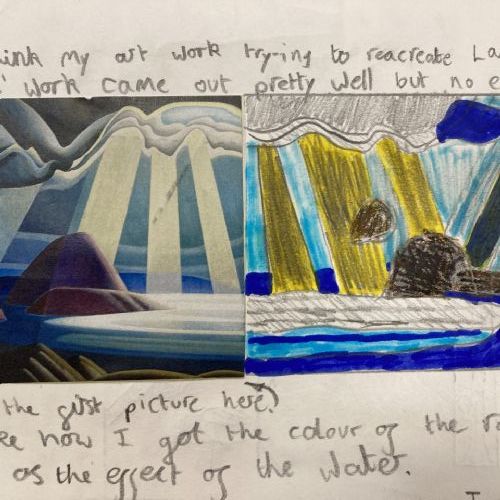 think my art work trying to reacreate La
' work came out pretty well but no e
the first picture here)
ee how I got the colour of the ra
as the effect of the water.
I